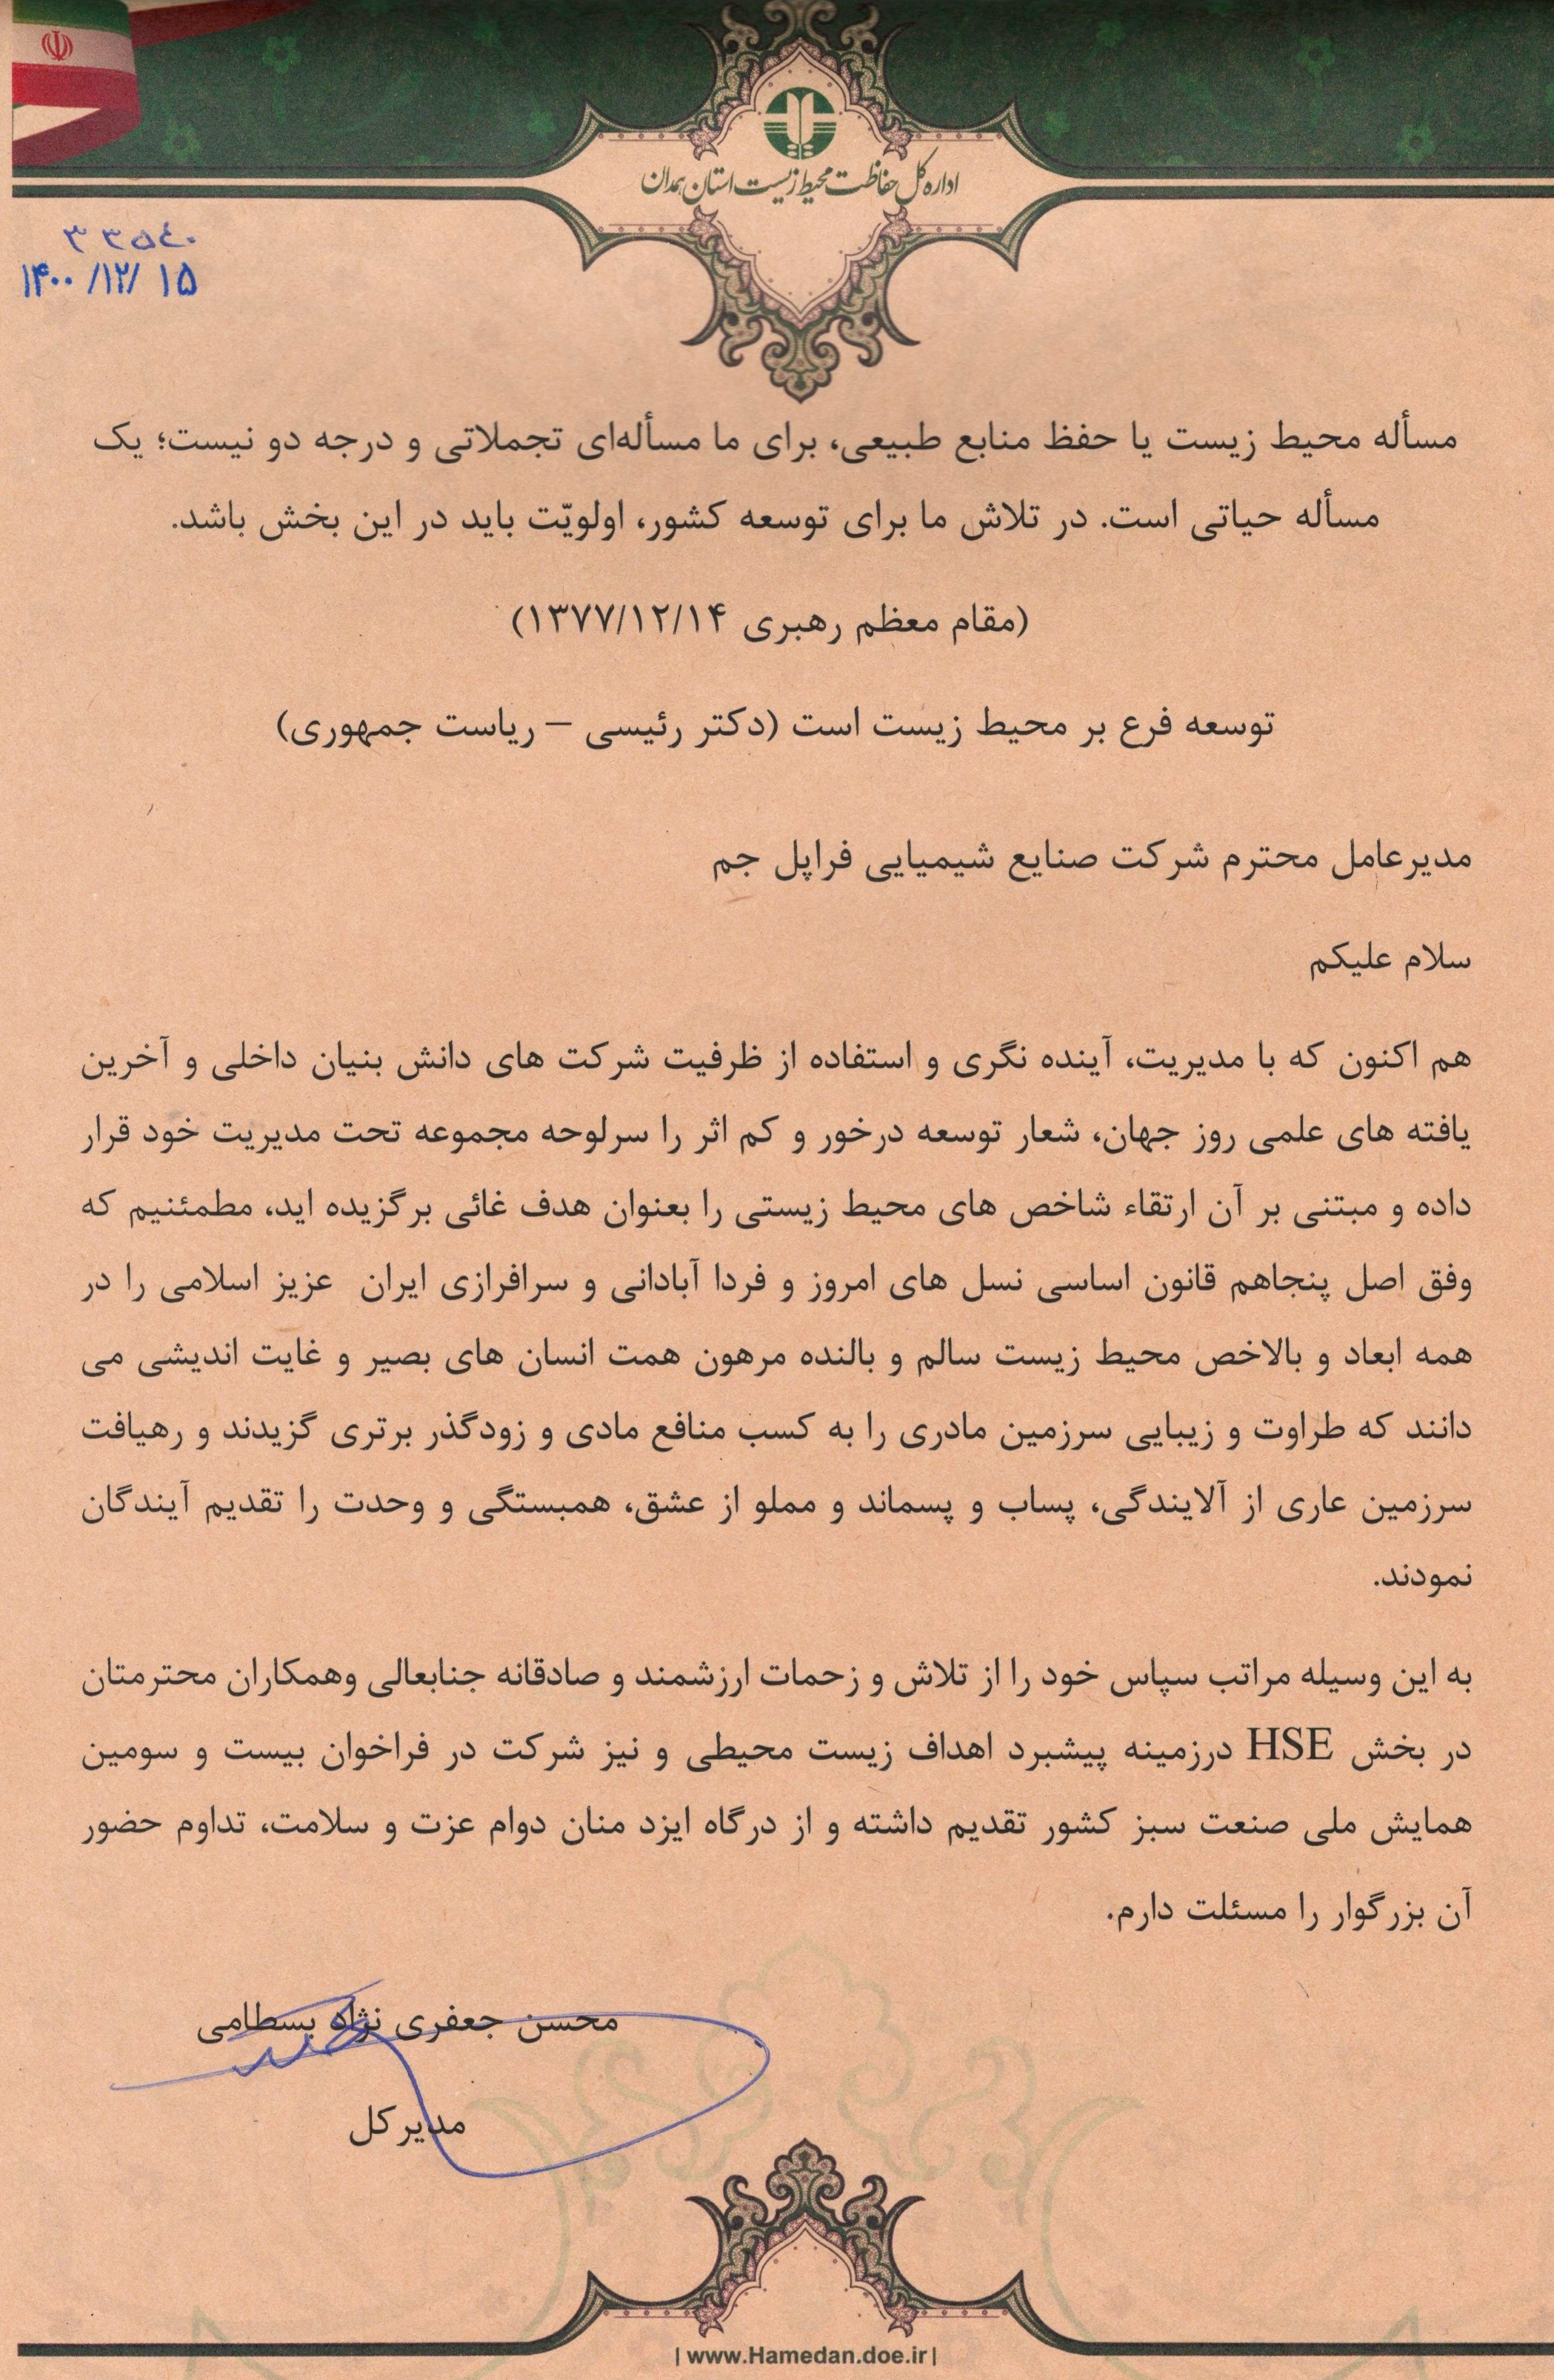 اداره کل حفاظت محیط زیست استان همدان
۳۳۵۴۰
۱۴۰۰/۱۲/۱۵
مسأله محیط زیست یا حفظ منابع طبیعی، برای ما مسأله‌ای تجملاتی و درجه دو نیست؛ یک
مسأله حیاتی است. در تلاش ما برای توسعه کشور، اولویّت باید در این بخش باشد.
(مقام معظم رهبری ۱۳۷۷/۱۲/۱۴)
توسعه فرع بر محیط زیست است (دکتر رئیسی – ریاست جمهوری)
مدیرعامل محترم شرکت صنایع شیمیایی فراپل جم
سلام علیکم
هم اکنون که با مدیریت، آینده نگری و استفاده از ظرفیت شرکت های دانش بنیان داخلی و آخرین
یافته های علمی روز جهان، شعار توسعه درخور و کم اثر را سرلوحه مجموعه تحت مدیریت خود قرار
داده و مبتنی بر آن ارتقاء شاخص های محیط زیستی را بعنوان هدف غائی برگزیده اید، مطمئنیم که
وفق اصل پنجاهم قانون اساسی نسل های امروز و فردا آبادانی و سرافرازی ایران عزیز اسلامی را در
همه ابعاد و بالاخص محیط زیست سالم و بالنده مرهون همت انسان های بصیر و غایت اندیشی می
دانند که طراوت و زیبایی سرزمین مادری را به کسب منافع مادی و زودگذر برتری گزیدند و رهیافت
سرزمین عاری از آلایندگی، پساب و پسماند و مملو از عشق، همبستگی و وحدت را تقدیم آیندگان
نمودند.
به این وسیله مراتب سپاس خود را از تلاش و زحمات ارزشمند و صادقانه جنابعالی وهمکاران محترمتان
در بخش HSE درزمینه پیشبرد اهداف زیست محیطی و نیز شرکت در فراخوان بیست و سومین
همایش ملی صنعت سبز کشور تقدیم داشته و از درگاه ایزد منان دوام عزت و سلامت، تداوم حضور
آن بزرگوار را مسئلت دارم.
محسن جعفری نژاد بسطامی
مدیرکل
| www.Hamedan.doe.ir |